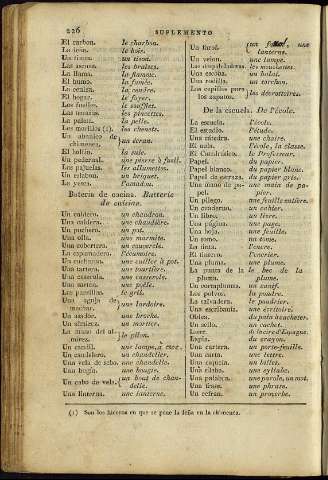 226 SUPLEMENTO
El carbon. le charbon.
La leña. le bois.
Un tizon. un tison.
Las ascuas. les braises.
La llama. la flamme.
El humo. la fumée.
La ceniza. la cendre.
El hogar. le foyer.
Los fuelles. le soufflet.
Las tenazas. les pincettes.
La paleta. la pelle.
Los morillos (1). les chenets.
Un abanico de chimenea. un écran.
El hollin. la suie.
Un pedernal. une pierre à fusil.
Las pajuelas. les allumettes.
Un eslabon. un briquet.
La yesca. l'amadou.
Batería de cocina. Batterie
de cuisine.
Un caldero. un chaudron.
Una caldera. une chaudière.
Un puchero. un pot.
Una olla. une marmite.
Una cobertera. un couvercle.
La espumadera. l'écumoire.
Un cucharon. une cuiller à pot.
Una tartera. une tourtière.
Una cazuela. une casserole.
Una sarten. une poêle.
Las parrillas. le gril.
Una aguja de mechar. une lardoire.
Un asador. une broche.
Un almirez. un mortier.
La mano del almirez. le pilon.
Un candil. une lampe, à croc.
Un candelero. un chandelier.
Una vela de sebo. une chandelle.
Una bugía. une bougie.
Un cabo de vela. un bout de chandelle.
Una linterna. une lanterne.
Un farol. un falot, une lanterne.
Un velon. une lampe.
Las despabiladeras. les mouchettes.
Una escoba. un balai.
Una rodilla. un torchon.
Los cepillos para los zapatos. les décrottoires.
De la escuela. De l'école.
La escuela. l'école.
El estudio. l'étude.
Una cátedra. une chaire.
El aula. l'école, la classe.
El Catedrático. le Professeur.
Papel. du papier.
Papel blanco. du papier blanc.
Papel de estraza. du papier gris.
Una mano de papel. une main de papier.
Un pliego. une feuille entière.
Un cuaderno. un cahier.
Un libro. un livre.
Una página. une page.
Una hoja. une feuille.
Un tomo. un tome.
La tinta. l'encre.
El tintero. l'écritoire.
Una pluma. une plume.
La punta de la pluma. le bec de la plume.
Un cortaplumas. un canif.
Los polvos. la poudre.
La salvadera. le poudrier.
Una escribanía. une écritoire.
Obleas. du pain à cacheter.
Un sello. un cachet.
Lacre. de la cire d'Espagne.
Lapiz. du crayon.
Una cartera. un porte-feuille.
Una carta. une lettre.
Un billete. un billet.
Una sílaba. une syllabe.
Una palabra. une parole, un mot.
Una frase. une phrase.
Un refran. un proverbe.
(1) Son los hierros en que se pone la leña en la chimenea.